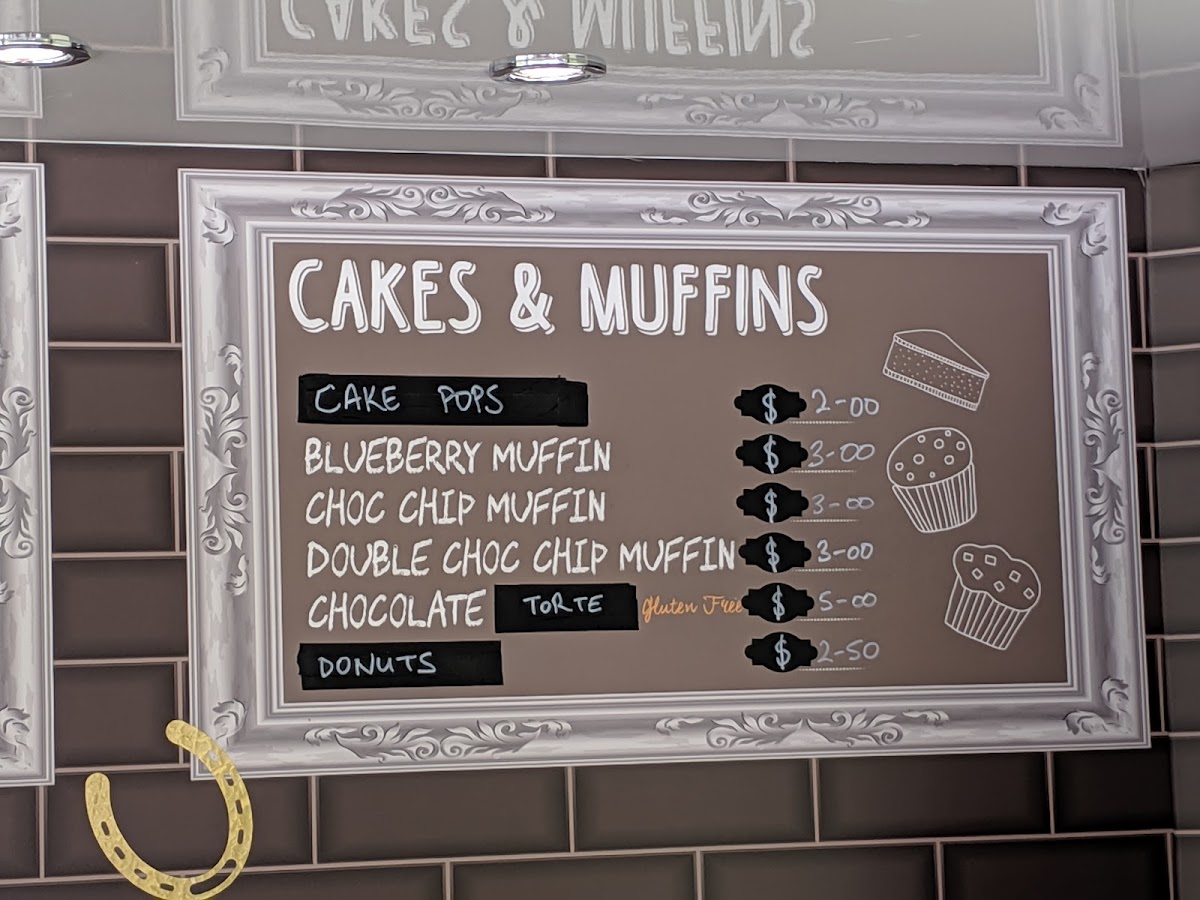 CAKES & MUFFINS
CAKES & MUFFINS
CAKE POPS $ 2-00
BLUEBERRY MUFFIN $ 3-00
CHOC CHIP MUFFIN $ 3-00
DOUBLE CHOC CHIP MUFFIN $ 3-00
CHOCOLATE TORTE Gluten Free $ 5-00
DONUTS $ 2-50